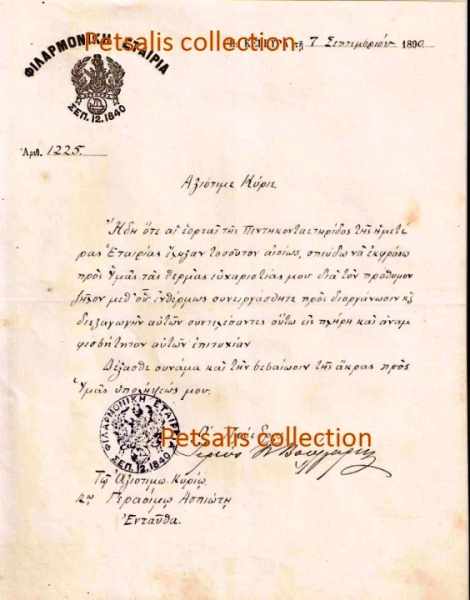 Petsalis collection.
ΦΙΛΑΡΜΟΝΙΚΗ ΕΤΑΙΡΙΑ
ΣΕΠ.12.1840
τῇ 7 Σεπτεμβρίου 1890
Ἀριθ. 1225.
Ἀξιότιμε Κύριε
Ἤδη ὅτε αἱ ἑορταὶ τῆς Πεντηκονταετηρίδος τῆς ἡμετέ
ρας Ἑταιρίας ἔληξαν τοσοῦτον αἰσίως, σπεύδω νὰ ἐκφράσω
πρὸς Ὑμᾶς τὰς θερμὰς εὐχαριστίας μου διὰ τὸν πρόθυμον
ζῆλον μεθ' οὗ ἐνθέρμως συνειργάσθητε πρὸς διοργάνωσιν κ
διεξαγωγὴν αὐτῶν συντελέσαντες οὕτω εἰς πλήρη καὶ ἀναμ
φισβήτητον αὐτῶν ἐπιτυχίαν
Δέξασθε συνάμα καὶ τὴν βεβαίωσιν τῆς ἄκρας πρὸς
Ὑμᾶς ὑπολήψεώς μου.
ΦΙΛΑΡΜΟΝΙΚΗ ΕΤΑΙΡΙΑ
ΣΕΠ.12.1840
Petsalis collection
Τῷ Ἀξιοτίμῳ Κυρίῳ
Κῳ Γερασίμῳ Ἀσπιώτῃ
Ἐνταῦθα.